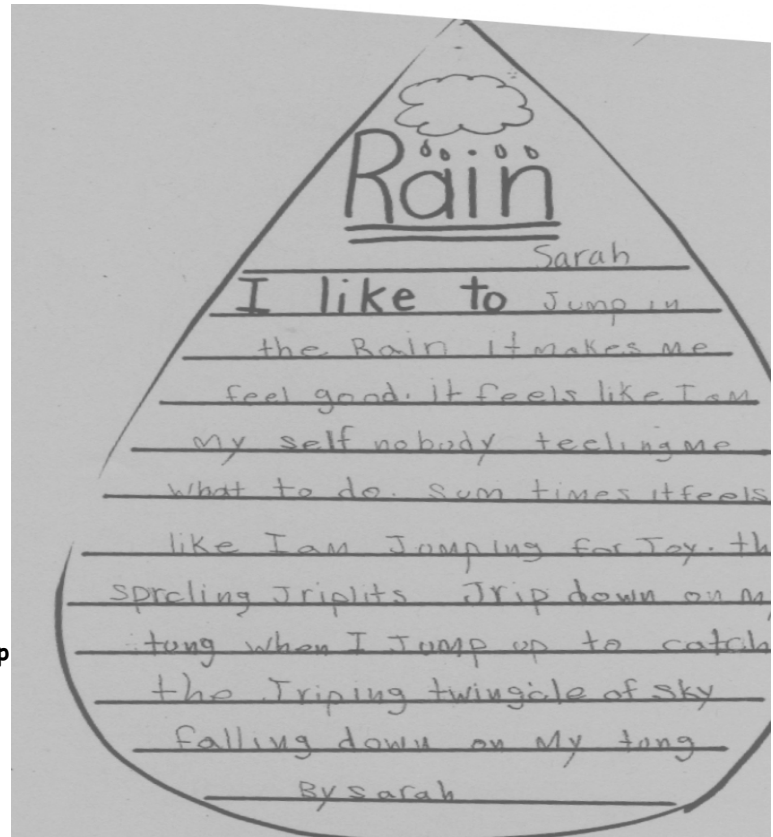 Rain
Sarah
I like to Jump in
the Rain it makes me
feel good. it feels like I am
my self nobody teeling me
what to do. Sum times it feels
like I am Jumping for Joy. th
sprcling Jriplits Jrip down on m
tung when I Jump up to catch
the Jriping twingicle of sky
falling down on my tung
By Sarah
p